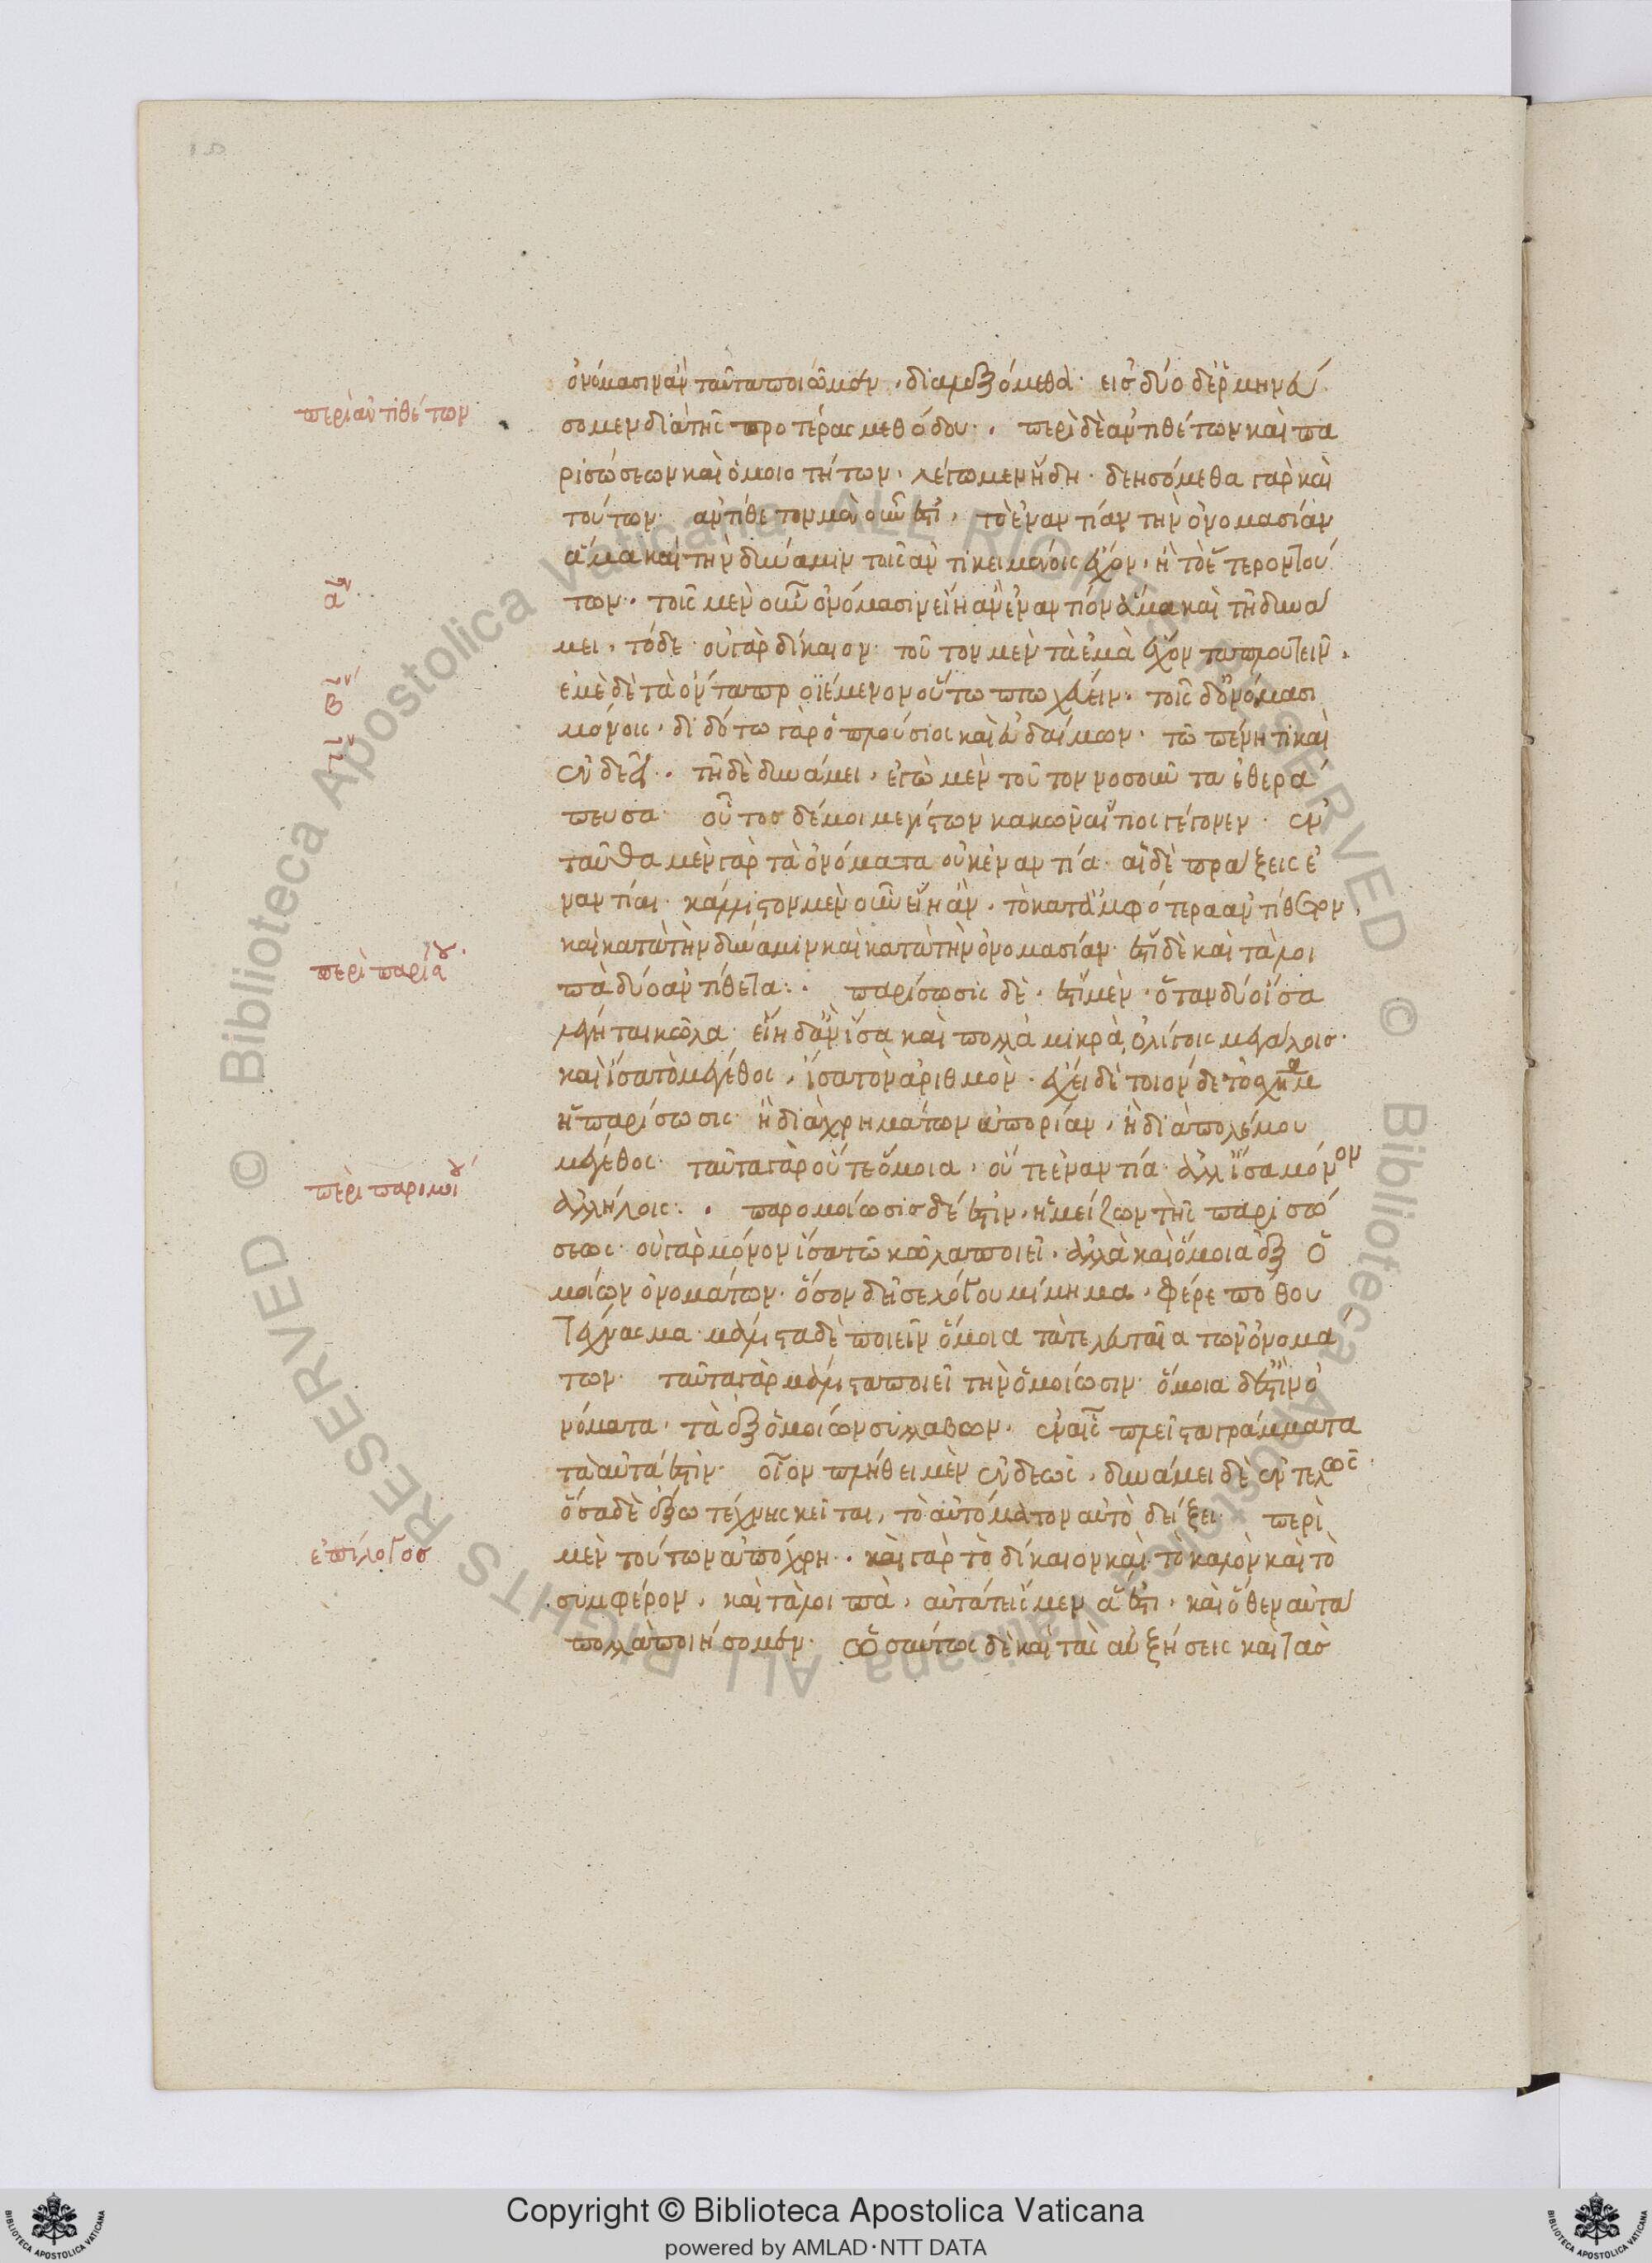 ὀνόμασιν ἂν ταῦτα ποιῶμεν, διαλεξόμεθα· εἰς δύο δ' ἑρμηνεύ
περὶ ἀντιθέτων
σομεν διὰ τῆς προτέρας μεθόδου·. περὶ δὲ ἀντιθέτων καὶ πα
ρισώσεων καὶ ὁμοιοτήτων, λέγωμεν ἤδη· δεησόμεθα γὰρ καὶ
τούτων· ἀντίθετον μὲν οὖν ἐστι, τὸ ἐναντίαν τὴν ὀνομασίαν
ἅμα καὶ τὴν δύναμιν τοῖς ἀντικειμένοις ἔχον, ἢ τὸ ἕτερον τού
αον
των· τοῖς μὲν οὖν ὀνόμασιν εἴη ἂν ἐναντίον ἅμα καὶ τῇ δυνά
μει, τόδε· οὐ γὰρ δίκαιον· τοῦτον μὲν τὰ ἐμὰ ἔχοντα πλουτεῖν,
βον
ἐμὲ δὲ τὰ ὄντα προϊέμενον οὕτω πτωχεύειν· τοῖς δ' ὀνόμασι
γον
μόνοις, διδότω γὰρ ὁ πλούσιος καὶ εὐδαίμων· τῷ πένητι καὶ
ἐνδεεῖ·. τῇ δὲ δυνάμει, ἐγὼ μὲν τοῦτον νοσοῦντα ἐθερά
πευσα· οὗτος δέ μοι μεγίστων κακῶν αἴτιος γέγονεν· ἐν
ταῦθα μὲν γὰρ τὰ ὀνόματα οὐκ ἐναντία· αἱ δὲ πράξεις ἐ
ναντίαι· κάλλιστον μὲν οὖν εἴη ἂν, τὸ κατ' ἀμφότερα ἀντίθετον,
καὶ κατὰ τὴν δύναμιν καὶ κατὰ τὴν ὀνομασίαν· ἔστι δὲ καὶ τὰ λοι
περὶ παρισ
πὰ δύο ἀντίθετα·. παρίσωσις δὲ, ἔστι μὲν, ὅταν δύο ἴσα
λέγηται κῶλα· εἴη δ' ἂν ἴσα καὶ πολλὰ μικρὰ, ὀλίγοις μεγάλοις·
καὶ ἴσα τὸ μέγεθος, ἴσα τὸν ἀριθμόν· ἔχει δὲ τοιόνδε τὸ σχῆμα
ἡ παρίσωσις· ἢ διὰ χρημάτων ἀπορίαν, ἢ διὰ πολέμου
μέγεθος· ταῦτα γὰρ οὔτε ὅμοια, οὔτε ἐναντία· ἀλλ' ἴσα μόνον
περὶ παρομοι
ἀλλήλοις·. παρομοίωσις δέ ἐστιν, ἡ μείζων τῆς παρισώ
σεως· οὐ γὰρ μόνον ἴσα τὰ κῶλα ποιεῖ, ἀλλὰ καὶ ὅμοια ἐξ ὁ
μοίων ὀνομάτων· ὅσον δεῖ σε λόγου μίμημα, φέρε πόθου
τέχνασμα· μάλιστα δὲ ποιεῖν ὅμοια τὰ τελευταῖα τῶν ὀνομά
των· ταῦτα γὰρ μάλιστα ποιεῖ τὴν ὁμοίωσιν· ὅμοια δ' ἐστὶν ὀ
νόματα, τὰ ἐξ ὁμοίων συλλαβῶν, ἐν αἷς πλεῖστα γράμματα
ταὐτά ἐστιν· οἷον πλήθει μὲν ἐνδεῶς, δυνάμει δὲ ἐντελῶς·
ὅσα δὲ ἔξω τέχνης κεῖται, τὸ αὐτόματον αὐτὸ δείξει· περὶ
ἐπίλογος
μὲν τούτων ἀπόχρη·. καὶ γὰρ τὸ δίκαιον καὶ τὸ καλὸν καὶ τὸ
συμφέρον, καὶ τὰ λοιπὰ, αὐτά τε ἴσμεν ἅ ἐστι, καὶ ὅθεν αὐτὰ
πολλὰ ποιήσομεν· ὡσαύτως δὲ καὶ τὰς αὐξήσεις καὶ τὰς
© Biblioteca Apostolica Vaticana ALL RIGHTS RESERVED © Biblioteca Apostolica Vaticana ALL RIGHTS RESERVED
Copyright © Biblioteca Apostolica Vaticana
powered by AMLAD·NTT DATA
BIBLIOTECA APOSTOLICA VATICANA
BIBLIOTECA APOSTOLICA VATICANA